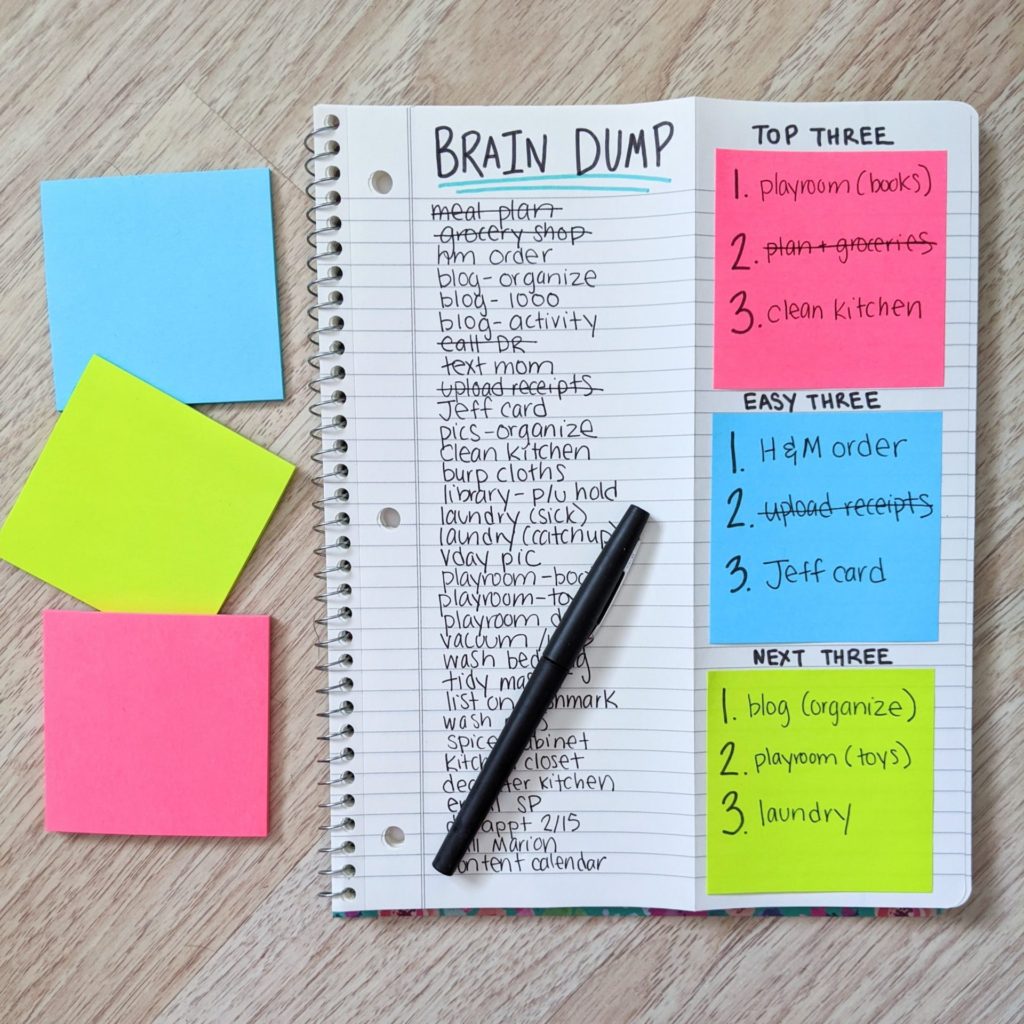 BRAIN DUMP
meal plan
grocery shop
hm order
blog-organize
blog-1000
blog-activity
call DR
text mom
upload receipts
Jeff card
pics-organize
clean kitchen
burp cloths
library-p/u hold
laundry (sick)
laundry (catchup)
vday pic
playroom-
playroom-
playroom
vacuum
wash
tidy
list on
wash
spice cabinet
kitchen closet
kitchen
SP
appt 2/15
Marion
content calendar
TOP THREE
1. playroom (books)
2. plan + groceries
3. clean kitchen
EASY THREE
1. H&M order
2. upload receipts
3. Jeff card
NEXT THREE
1. blog (organize)
2. playroom (toys)
3. laundry